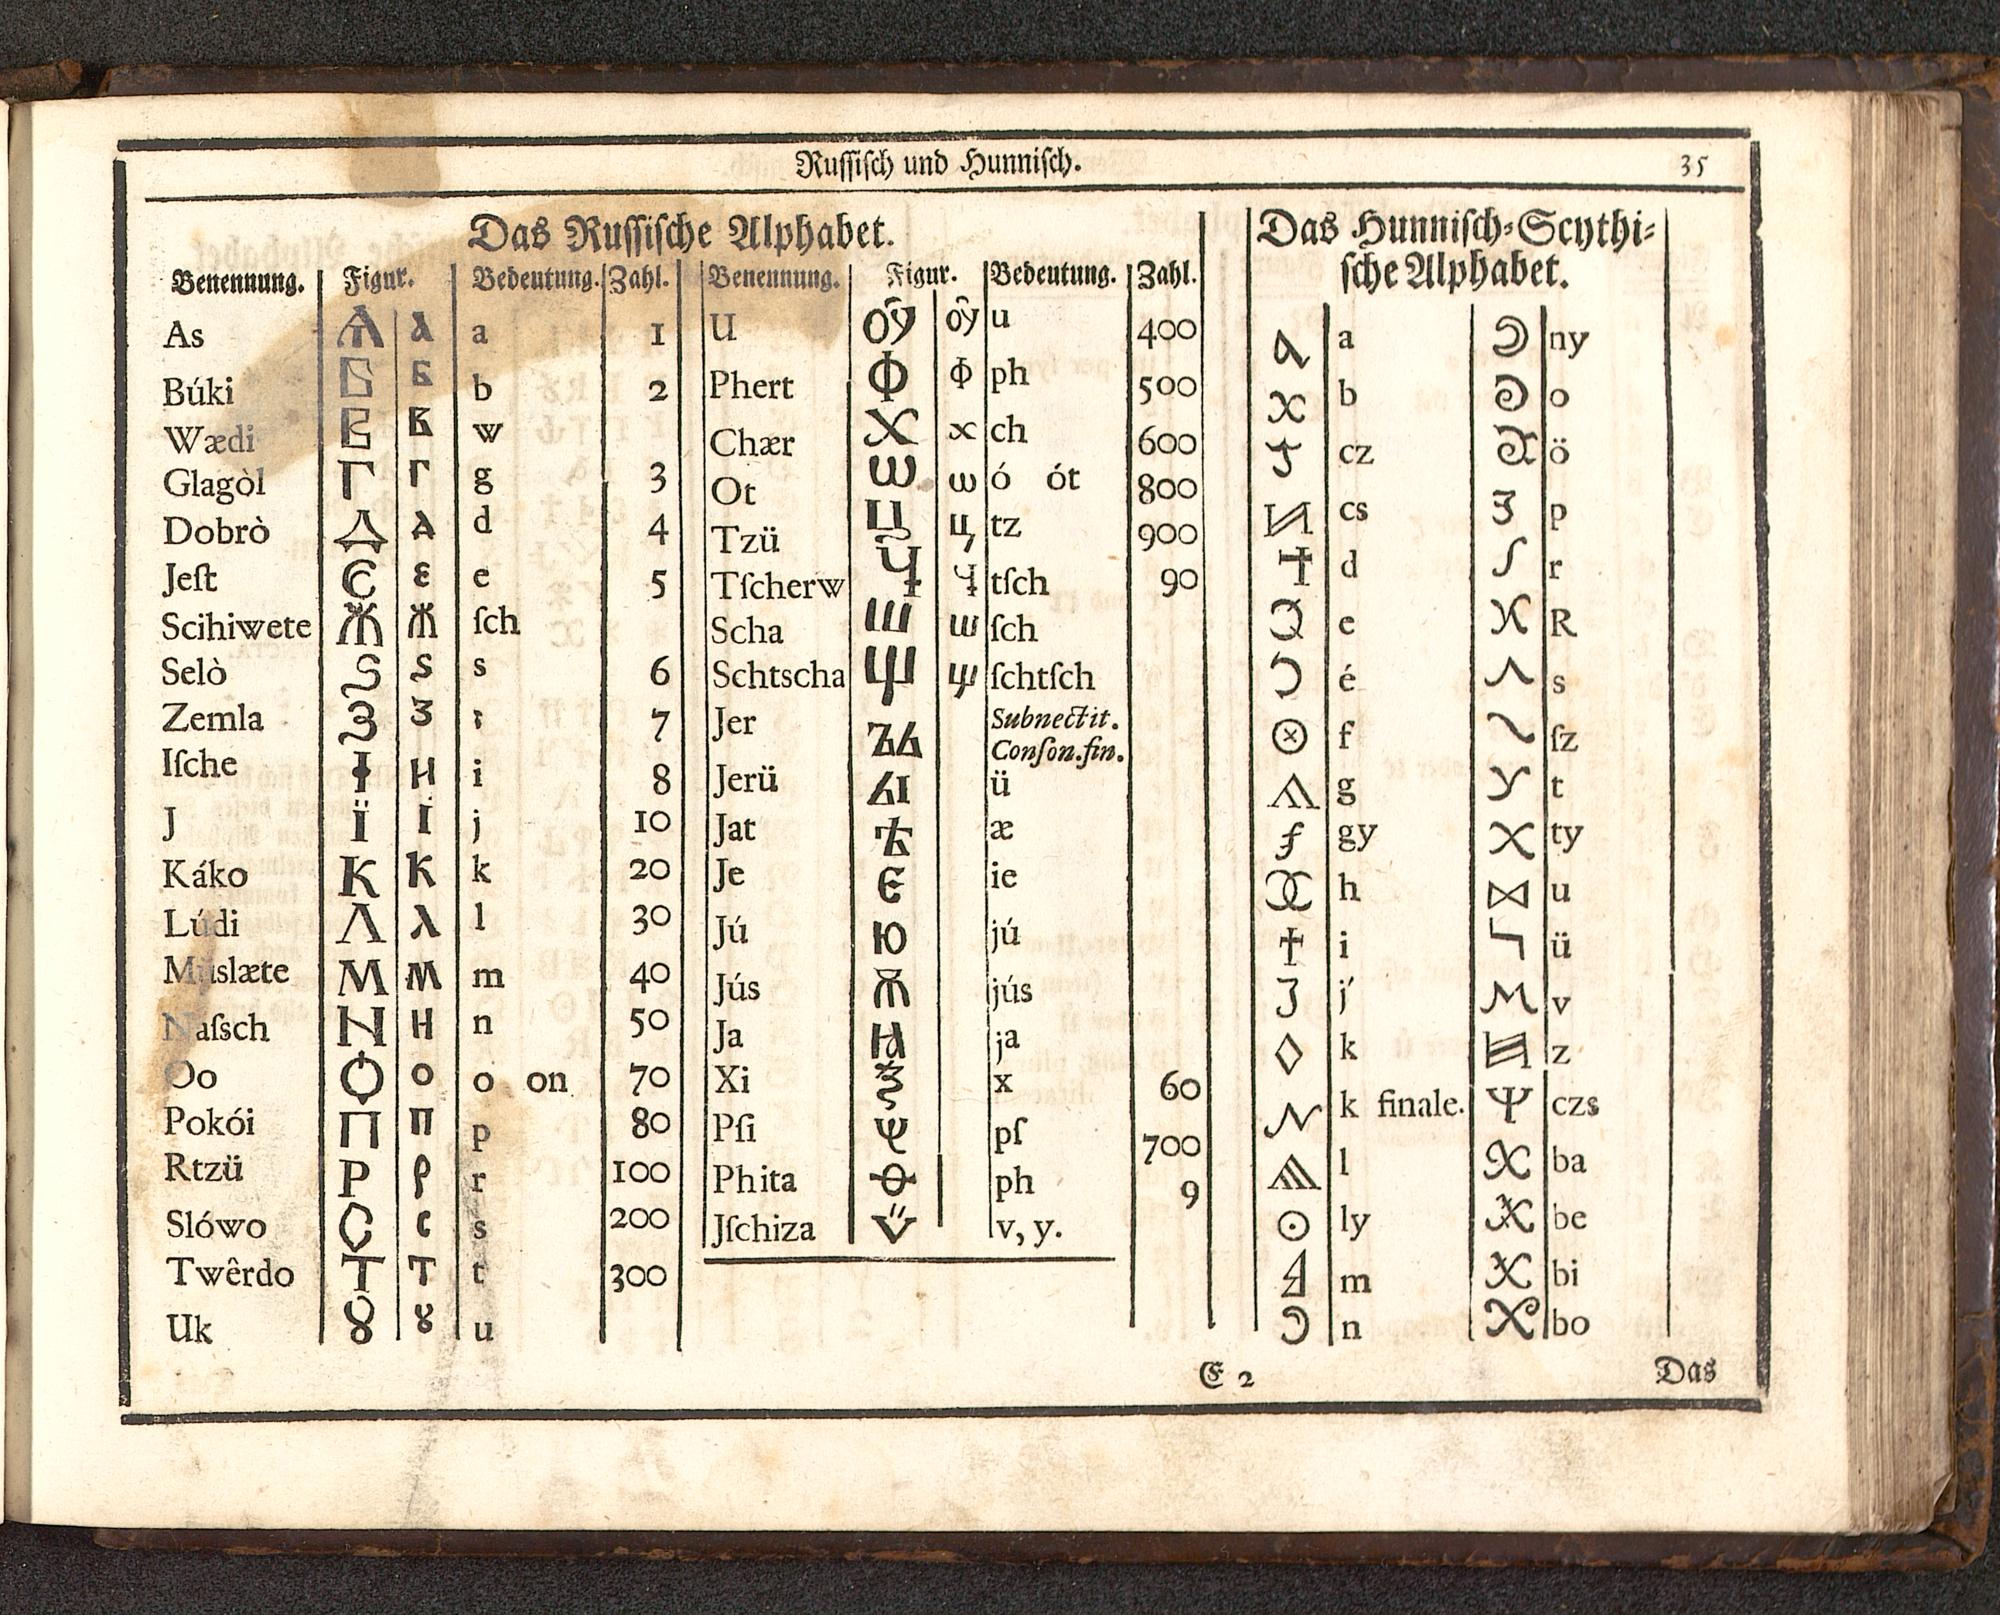 Ruſſiſch und Hunniſch. 35
Das Ruſſiſche Alphabet.
Benennung. Figur. Bedeutung. Zahl.
As Ѧ а a 1
Búki Б б b 2
Wædi В в w
Glagòl Г г g 3
Dobrò Д д d 4
Jeſt Є є e 5
Scihiwete Ж ж ſch
Selò Ѕ ѕ s 6
Zemla З з 7
Iſche И и i 8
J Ї ї j 10
Káko К к k 20
Lúdi Л л l 30
Müslæte М м m 40
Naſsch Н н n 50
Oo О о o on 70
Pokói П п p 80
Rtzü Р р r 100
Slówo С с s 200
Twêrdo Т т t 300
Uk Ȣ ȣ u
Benennung. Figur. Bedeutung. Zahl.
U ОУ оу u 400
Phert Ф ф ph 500
Chær Х х ch 600
Ot Ѡ ѡ ó ót 800
Tzü Ц ц tz 900
Tſcherw Ч ч tſch 90
Scha Ш ш ſch
Schtscha Щ щ ſchtſch
Jer ЪЬ Subnectit.
Conſon.fin.
Jerü ЬІ ü
Jat Ѣ æ
Je Є ie
Jú Ю jú
Jús Ѫ jús
Ja Ꙗ ja
Xi Ѯ x 60
Pſi Ѱ pſ 700
Phita Ѳ ph 9
Jſchiza Ѵ v, y.
Das Hunniſch-Scythi-
ſche Alphabet.
a
b
cz
cs
d
e
é
f
g
gy
h
i
j
k
k finale.
l
ly
m
n
ny
o
ö
p
r
R
s
ſz
t
ty
u
ü
v
z
czs
ba
be
bi
bo
E 2 Das